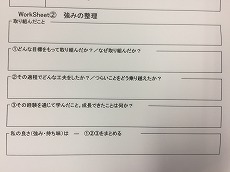 WorkSheet② 強みの整理
取り組んだこと
①どんな目標をもって取り組んだか？／なぜ取り組んだか？
②その過程でどんな工夫をしたか？／つらいことをどう乗り越えたか？
③その経験を通じて学んだこと。成長できたことは何か？
私の良さ(強み・持ち味)は ― ①②③をまとめる